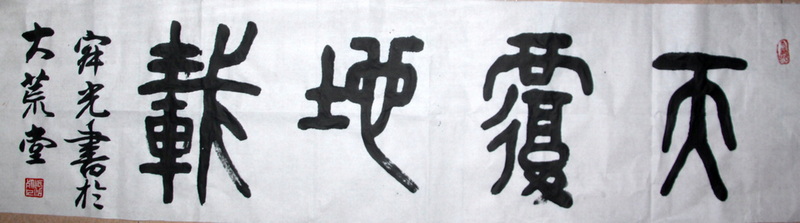 天覆地載
舜光書於
大荒堂